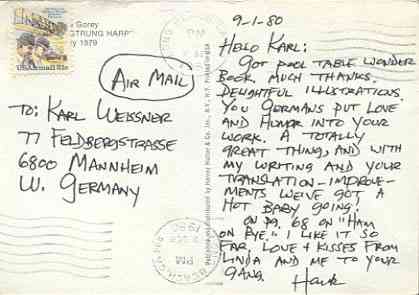 Gorey
STRUNG HARP
1979
USAirmail 21c
AIR MAIL
TO: KARL WEISSNER
77 FELDBERGSTRASSE
6800 MANNHEIM
W. GERMANY
PM
1980
PM
9-1-80
HELLO KARL:
GOT POOL TABLE WONDER
BOOK. MUCH THANKS.
DELIGHTFUL ILLUSTRATIONS.
YOU GERMANS PUT LOVE
AND HUMOR INTO YOUR
WORK. A TOTALLY
GREAT THING, AND WITH
MY WRITING AND YOUR
TRANSLATION-IMPROVE-
MENTS WE'VE GOT A
HOT BABY GOING!
ON PG. 68 ON "HAM
ON RYE." I LIKE IT SO
FAR, LOVE + KISSES FROM
LINDA AND ME TO YOUR
GANG.
Hank